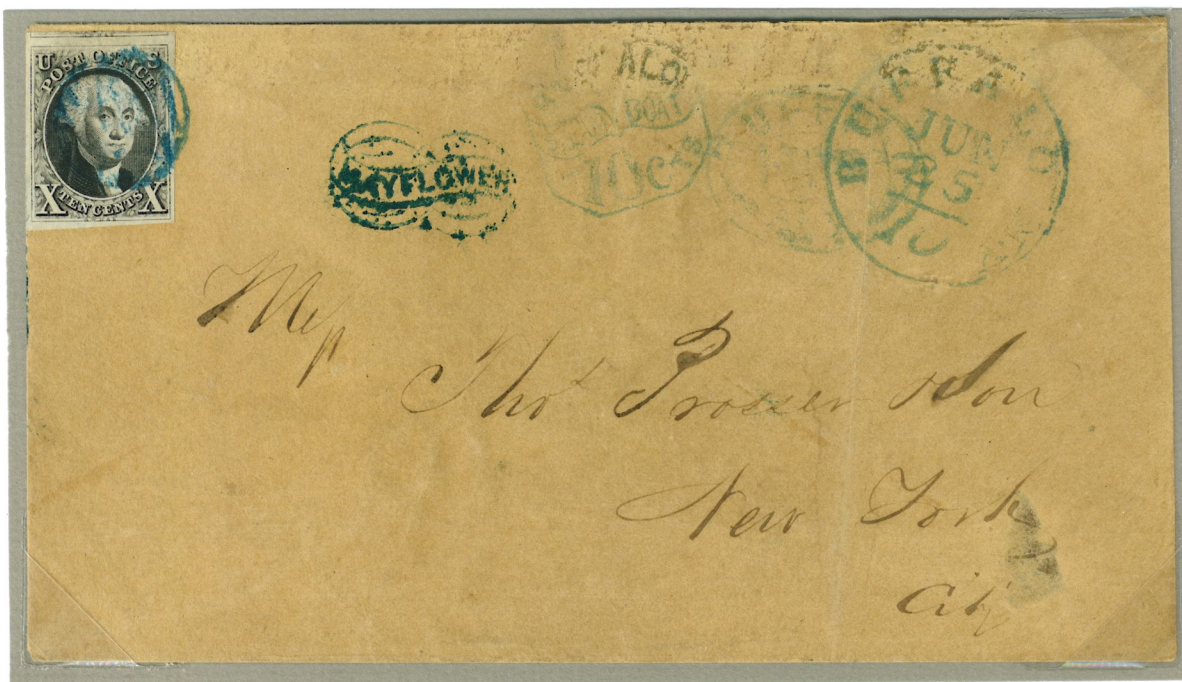 U S
POST OFFICE
X TEN CENTS X
MAYFLOWER
ALO
BOAT
10 Cts
BUFFALO
JUN
25
10
Mess
Thos Prosser & Son
New York
City